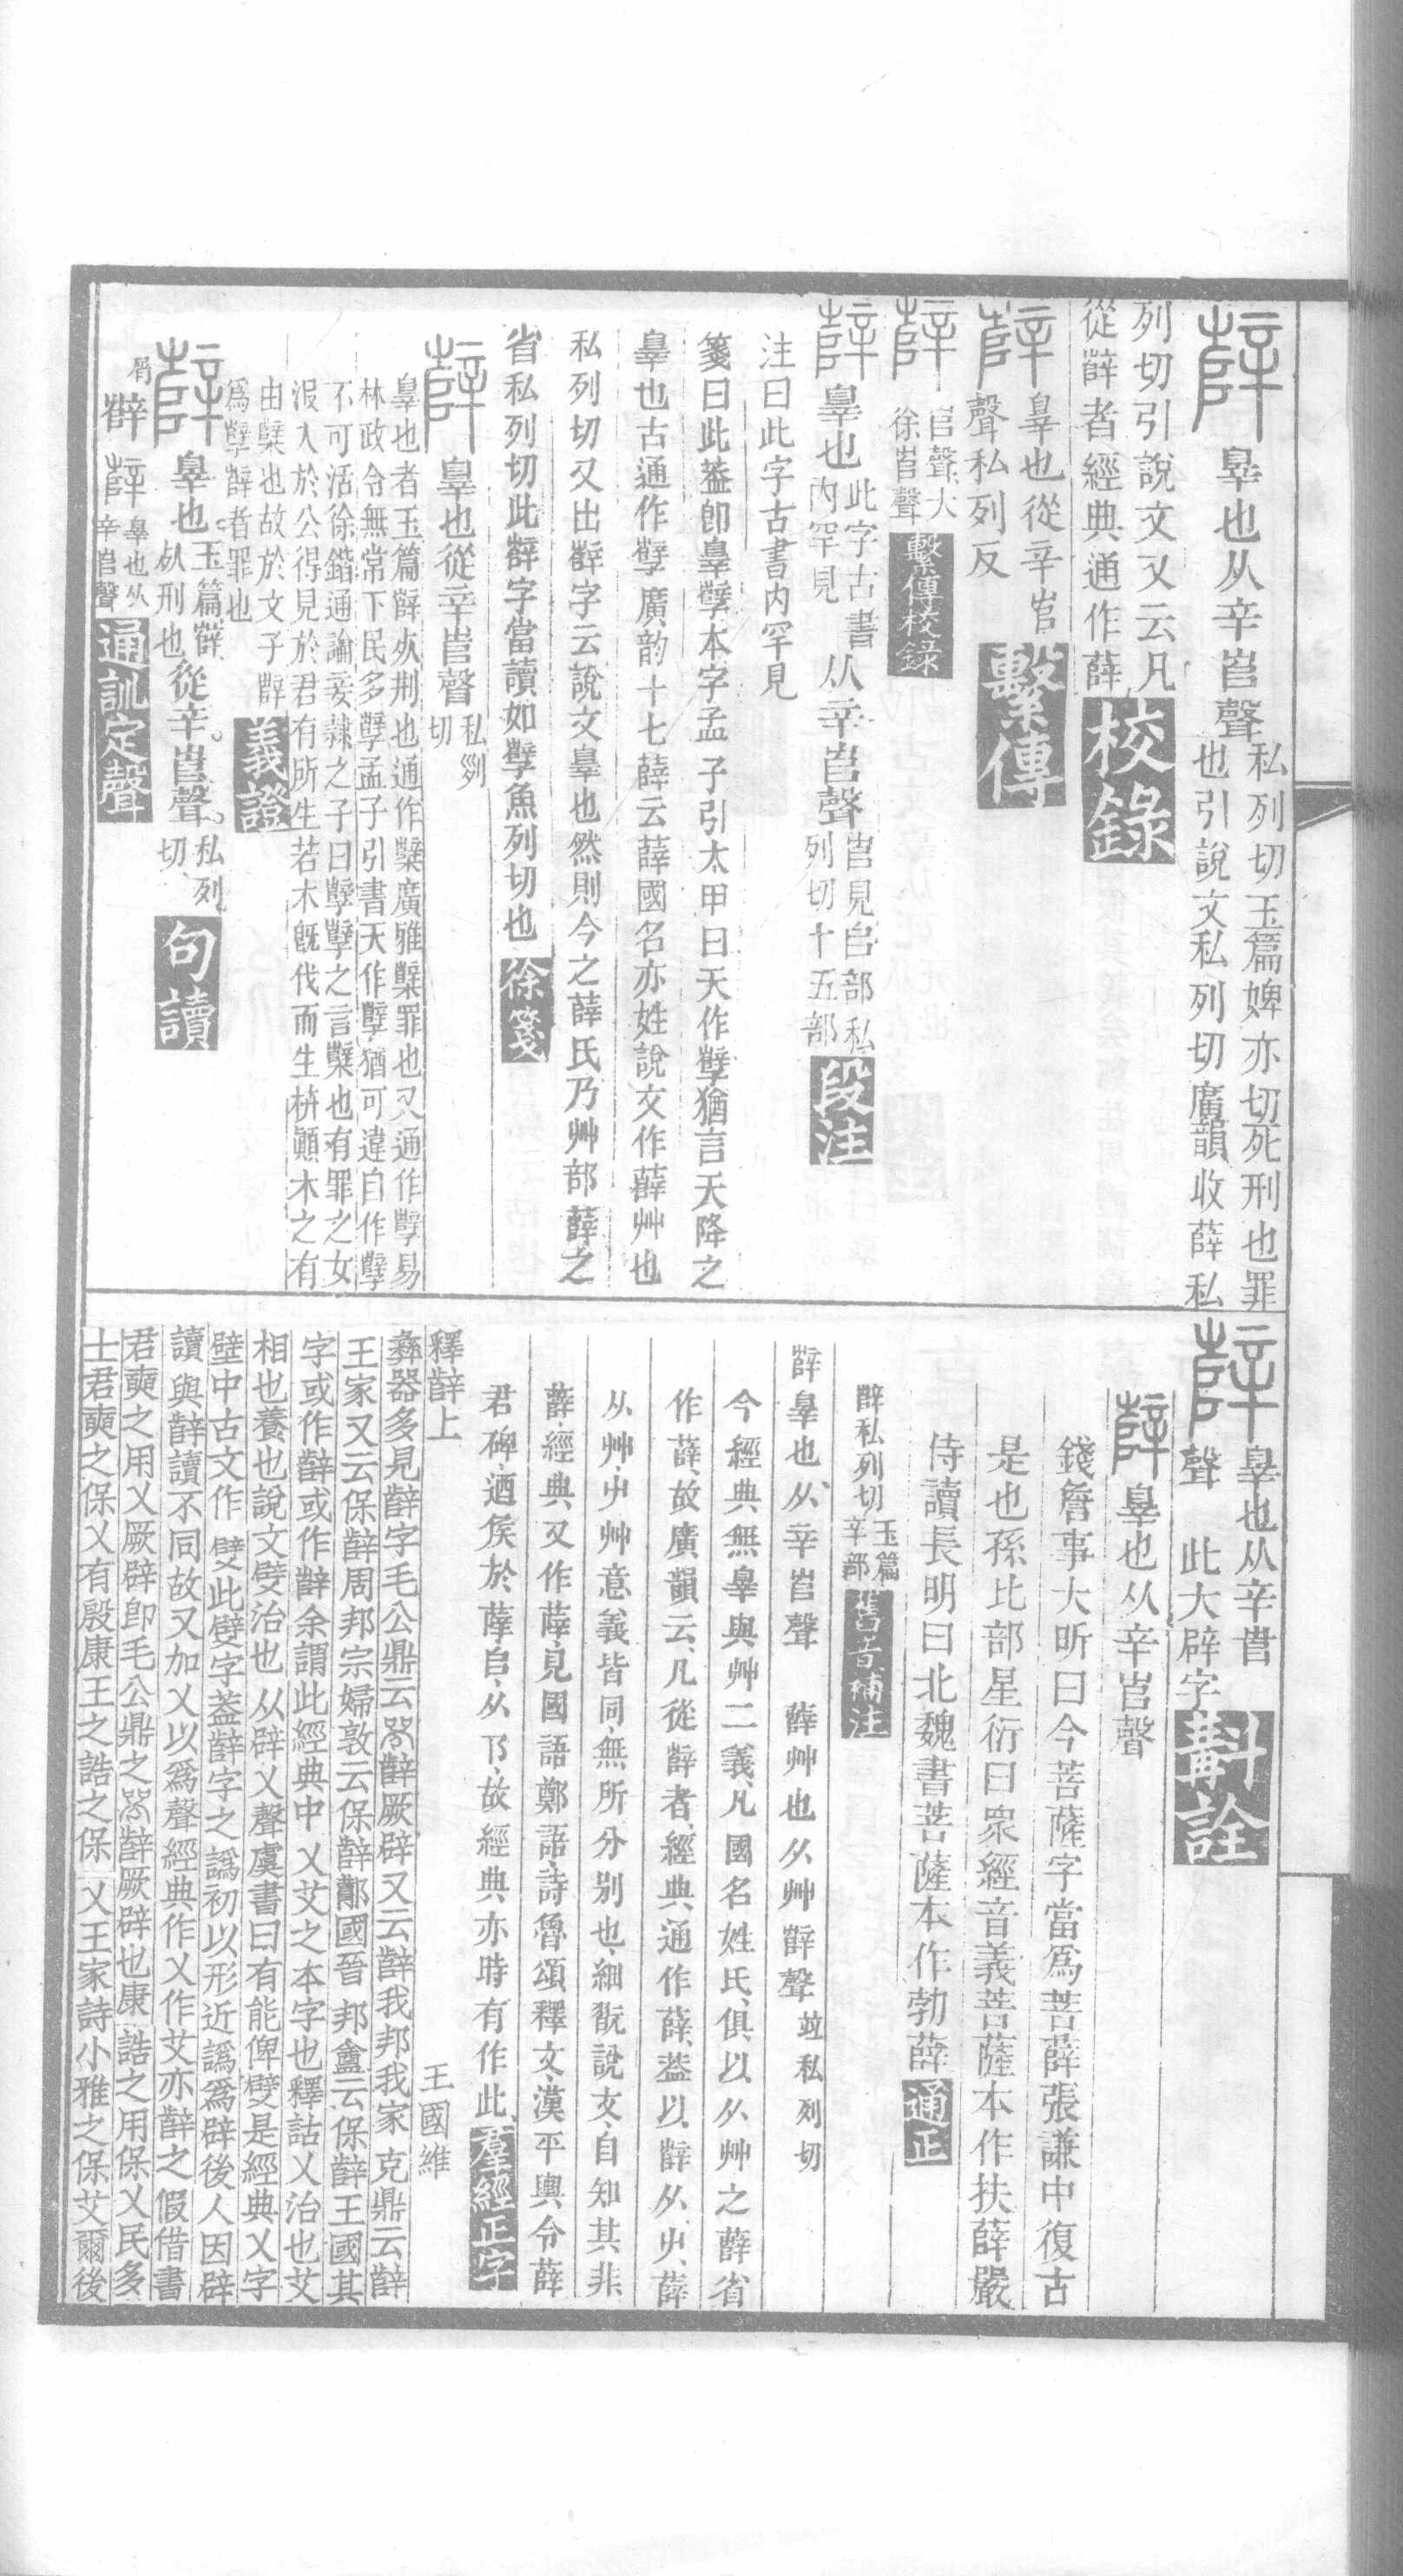 辥 辠也从辛㞷聲私列切玉篇婢亦切死刑也罪
也引說文私列切廣韻收薛私
列切引說文又云凡
從辥者經典通作薛 校錄
辥 辠也從辛㞷
聲私列反 繫傳
辥 㞷聲大
徐㞷聲 繫傳校錄
辥 辠也此字古書
內罕見从辛㞷聲㞷見𠂤部私
列切十五部 段注
注曰此字古書內罕見
箋曰此葢卽辠孼本字孟子引太甲曰天作孼猶言天降之
辠也古通作孼廣韵十七薛云薛國名亦姓說文作薛艸也
私列切又出辥字云說文辠也然則今之薛氏乃艸部薛之
省私列切此辥字當讀如孼魚列切也 徐箋
辥 辠也從辛㞷聲私列
切
辠也者玉篇辥死刑也通作櫱廣雅櫱罪也又通作孼易
林政令無常下民多孼孟子引書天作孼猶可違自作孼
不可活徐鍇通論妾隸之子曰孼孼之言櫱也有罪之女
沒入於公得見於君有所生若木旣伐而生枿顚木之有
由櫱也故於文子辥
爲孼辥者罪也 義證
辥 辠也玉篇辥
死刑也從辛㞷聲私列
切 句讀
屑 辥 辥辠也从
辛㞷聲 通訓定聲
辥 辠也从辛㞷
聲 此大辟字 斠詮
辥 辠也从辛㞷聲
錢詹事大昕曰今菩薩字當爲菩薛張謙中復古
是也孫比部星衍曰衆經音義菩薩本作扶薛嚴
侍讀長明曰北魏書菩薩本作勃薛 通正
辥私列切玉篇
辛部 舊音補注
辥辠也从辛㞷聲 薛艸也从艸辥聲竝私列切
今經典無辠與艸二義凡國名姓氏俱以从艸之薛省
作薛故廣韻云凡從辥者經典通作薛葢以辥从屮薛
从艸屮艸意義皆同無所分别也細翫說文自知其非
薛經典又作薩見國語鄭語詩魯頌釋文漢平輿令薛
君碑迺矦於薩𠂤从㔾故經典亦時有作此 羣經正字
釋辥上 王國維
彝器多見辥字毛公鼎云辥厥辟又云辥我邦我家克鼎云辥
王家又云保辥周邦宗婦敦云保辥鄁國晉邦盦云保辥王國其
字或作辥或作辥余謂此經典中乂艾之本字也釋詁乂治也艾
相也養也說文嬖治也从辟乂聲虞書曰有能俾嬖是經典乂字
壁中古文作嬖此嬖字葢辥字之譌初以形近譌爲辟後人因辟
讀與辥讀不同故又加乂以爲聲經典作乂作艾亦辥之假借書
君奭之用乂厥辟卽毛公鼎之辥厥辟也康誥之用保乂民多
士君奭之保乂有殷康王之誥之保乂王家詩小雅之保艾爾後